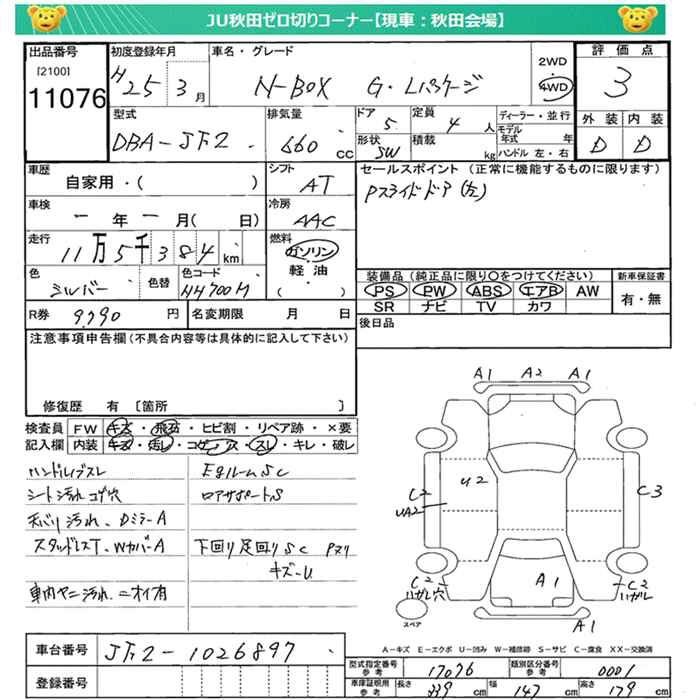 JU秋田ゼロ切りコーナー【現車：秋田会場】
出品番号 初度登録年月 車名・グレード 2WD 4WD 評価点
[2100]
11076 H25 3月 N-BOX G・Lパッケージ 3
型式 排気量 ドア 定員 ディーラー・並行 外装 内装
DBA-JF2 660cc 5 4人 モデル年式 年 D D
形状 積載 kg ハンドル 左・右
SW
車歴 シフト セールスポイント (正常に機能するものに限ります)
自家用・( ) AT Pスライドドア(左)
車検 冷房
一年一月( 日) AAC
走行 燃料
11万5千384km ガソリン
軽油
( ・ )
色 色替 色コード 装備品 (純正品に限り○をつけてください) 新車保証書
シルバー NH700M PS PW ABS エアB AW 有・無
SR ナビ TV カワ
R券 9,990円 名変期限 月 日 後日品
注意事項申告欄 (不具合内容等は具体的に記入して下さい)
修復歴 有 〔箇所 〕
検査員 FW キズ・飛石・ヒビ割・リペア跡・×要
記入欄 内装 キズ・汚レ・コゲ・穴・スレ・キレ・破レ
ハンドルレブスレ EgルームSC
シート汚れコゲ穴 ロアサポートS
天バリ汚れ、DミラーA
スタッドレスT、WカバーA 下回り足回りSC Pヌリ
キズ-U
車内ヤニ汚れ ニオイ有
A1 A2 A1
U2
C2
UA2
C3
C2
ハガレ穴
A1
C2
ハガレ
スペア
A1
A-キズ E-エクボ U-凹み W-補修跡 S-サビ C-腐食 XX-交換済
車台番号 JF2-1026897
登録番号
型式指定番号 参考 17076 類別区分番号 参考 0001
車庫証明用 参考 長さ 339cm 幅 147cm 高さ 179cm